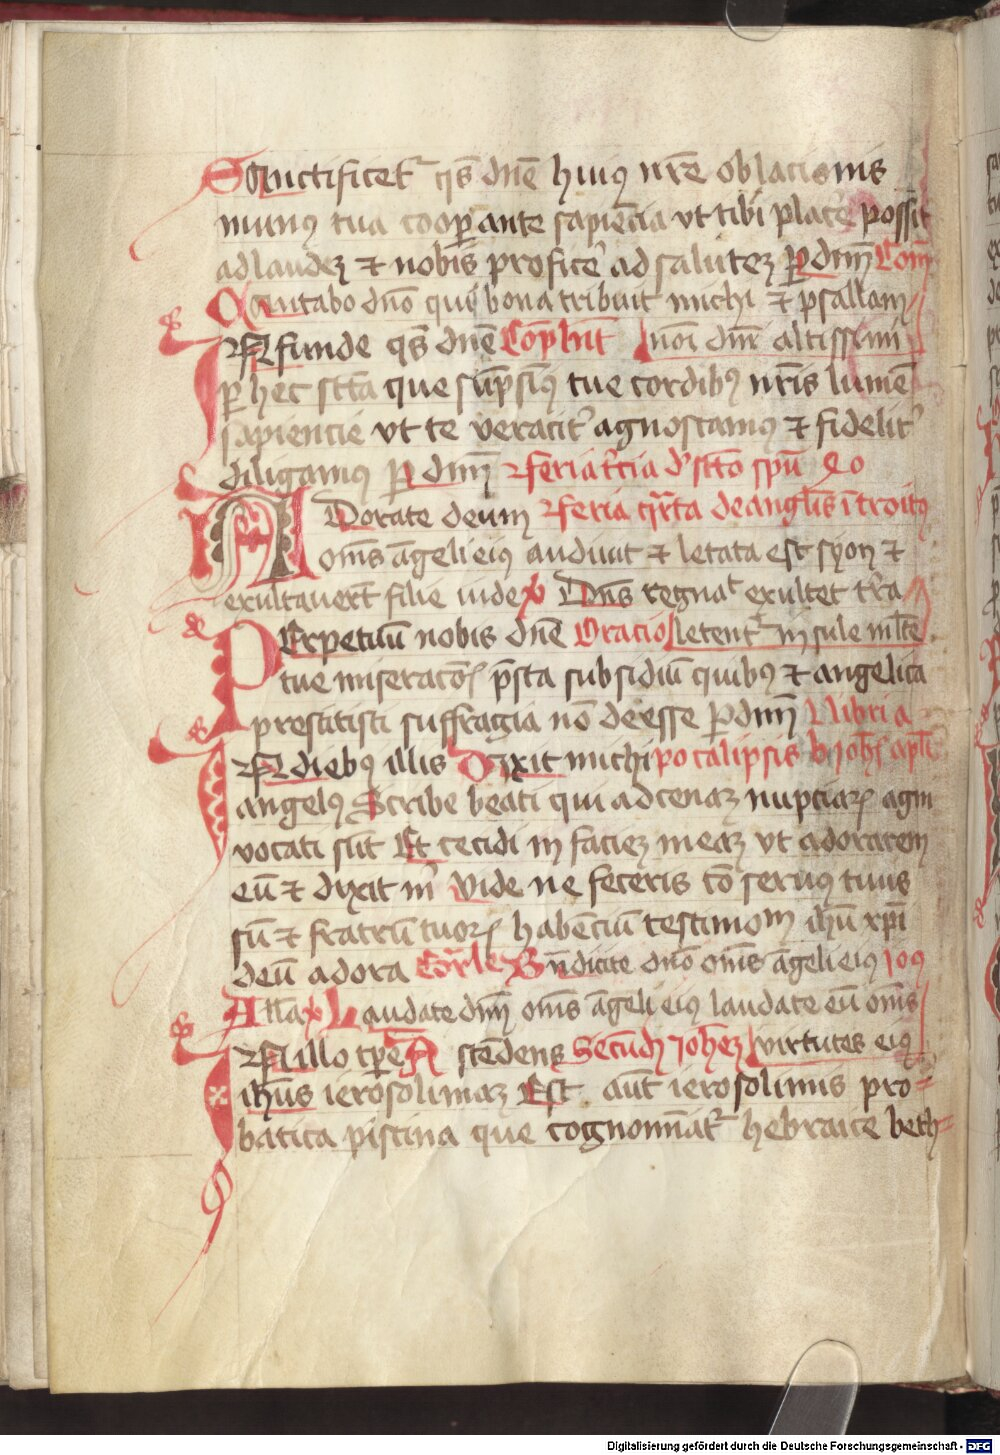 Sanctificet᷑ qs̄ dn̄e huiꝰ nr̄e oblacionis
munus tua cooꝑante sapiēcia vt tibi place᷑ possit
ad laudeꝫ ⁊ nobis profice᷑ ad saluteꝫ ꝑ dm̄ Com̄
Cantabo dn̄o qui bona tribuit michi ⁊ psallam
INfunde qs̄ dn̄e Cōplend nōi dn̄i altissimi
ꝑ hec sct̄a que sūpsimꝰ tue cordibꝰ nr̄is lumē
sapiencie vt te veracit᷑ agnoscamꝰ ⁊ fidelit᷑
diligamus ꝑ dm̄ feria t᷑cia d᷑ sct̄o spū Eo
ADorate deum feria qr̄ta de angl̄is ītroitꝰ
om̄s āgeli eiꝰ audiuit ⁊ letata est syon ⁊
exultauer̄t filie iude ℣ Dn̄s regna᷑ exultet tr̄a
PErpetuū nobis dn̄e Oracio letent᷑ insule ml̄te
tue miseracōꝭ p̄sta subsidiū quibꝰ ⁊ angelica
prestitisti suffragia nō deesse ꝑ dm̄ L libri a
IN diebꝰ illis Dixit michi pocalipsis b Joh̄ apl̄i
angelꝰ Scribe beati qui ad cenaꝫ nupciaꝝ agni
vocati sūt Et cecidi in facieꝫ meaꝫ vt adorarem
eū ⁊ dixit m᷑ Vide ne feceris cō seruꝰ tuus
sū ⁊ fratrū tuoꝝ habēciū testimoniū ihū xp̄i
deū adora Gr̄le Bn̄dicite dn̄o om̄s āgeli eiꝰ
All̄a ℣ Laudate dm̄ om̄s āgeli eiꝰ laudate eū om̄s
IN illo tꝑe A scēdens Secūdꝫ Joh̄eꝫ virtutes eiꝰ
ih̄us ierosolimaꝫ Est aūt ierosolimis pro⸗
batica piscina que cognominat᷑ hebraice beth⸗
Digitalisierung gefördert durch die Deutsche Forschungsgemeinschaft - DFG